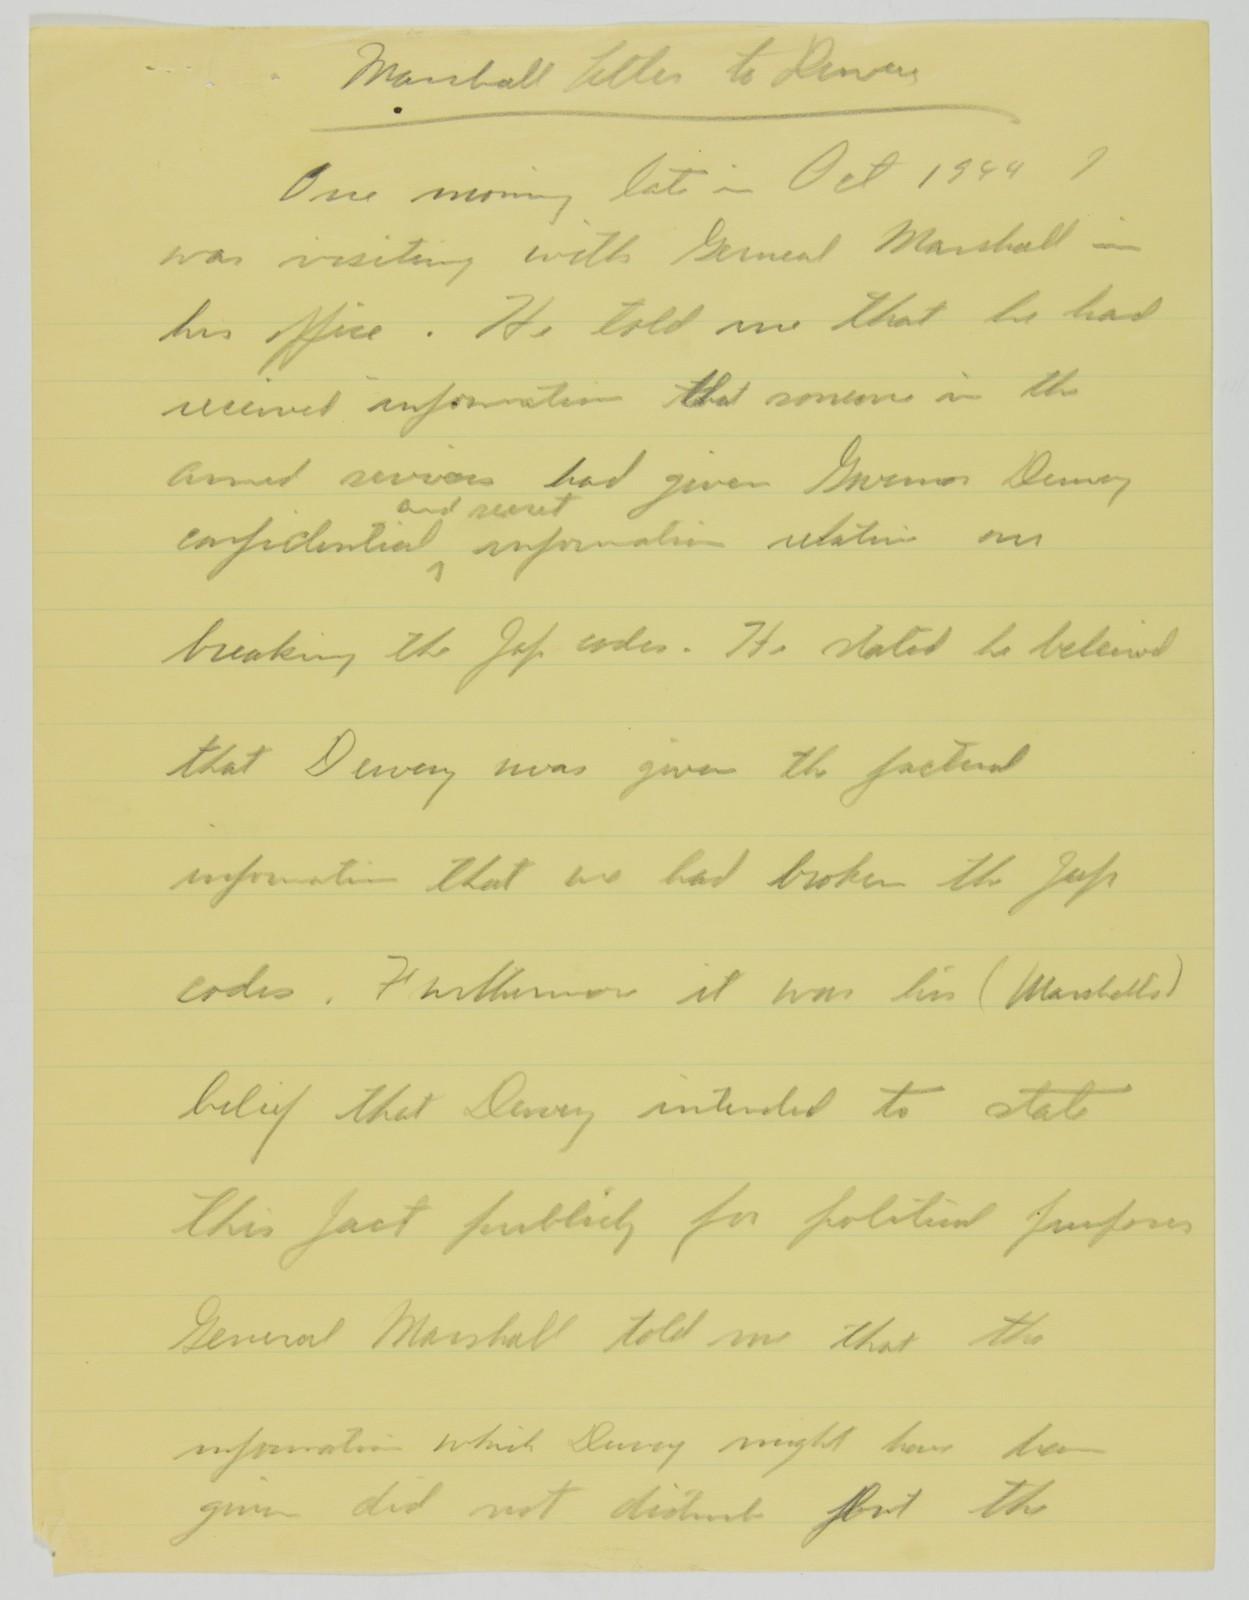 Marshall letter to Dewey
One morning late in Oct 1944 I
was visiting with General Marshall in
his office. He told me that he had
received information that someone in the
armed services had given Governor Dewey
and secret
confidential ^ information relative our
breaking the Jap codes. He stated he beleived
that Dewey was given the factual
information that we had broken the Jap
codes. Furthermore it was his (Marshalls)
belief that Dewey intended to state
this fact publicly for political purposes
General Marshall told me that the
information which Dewey might have been
given did not disturb but the